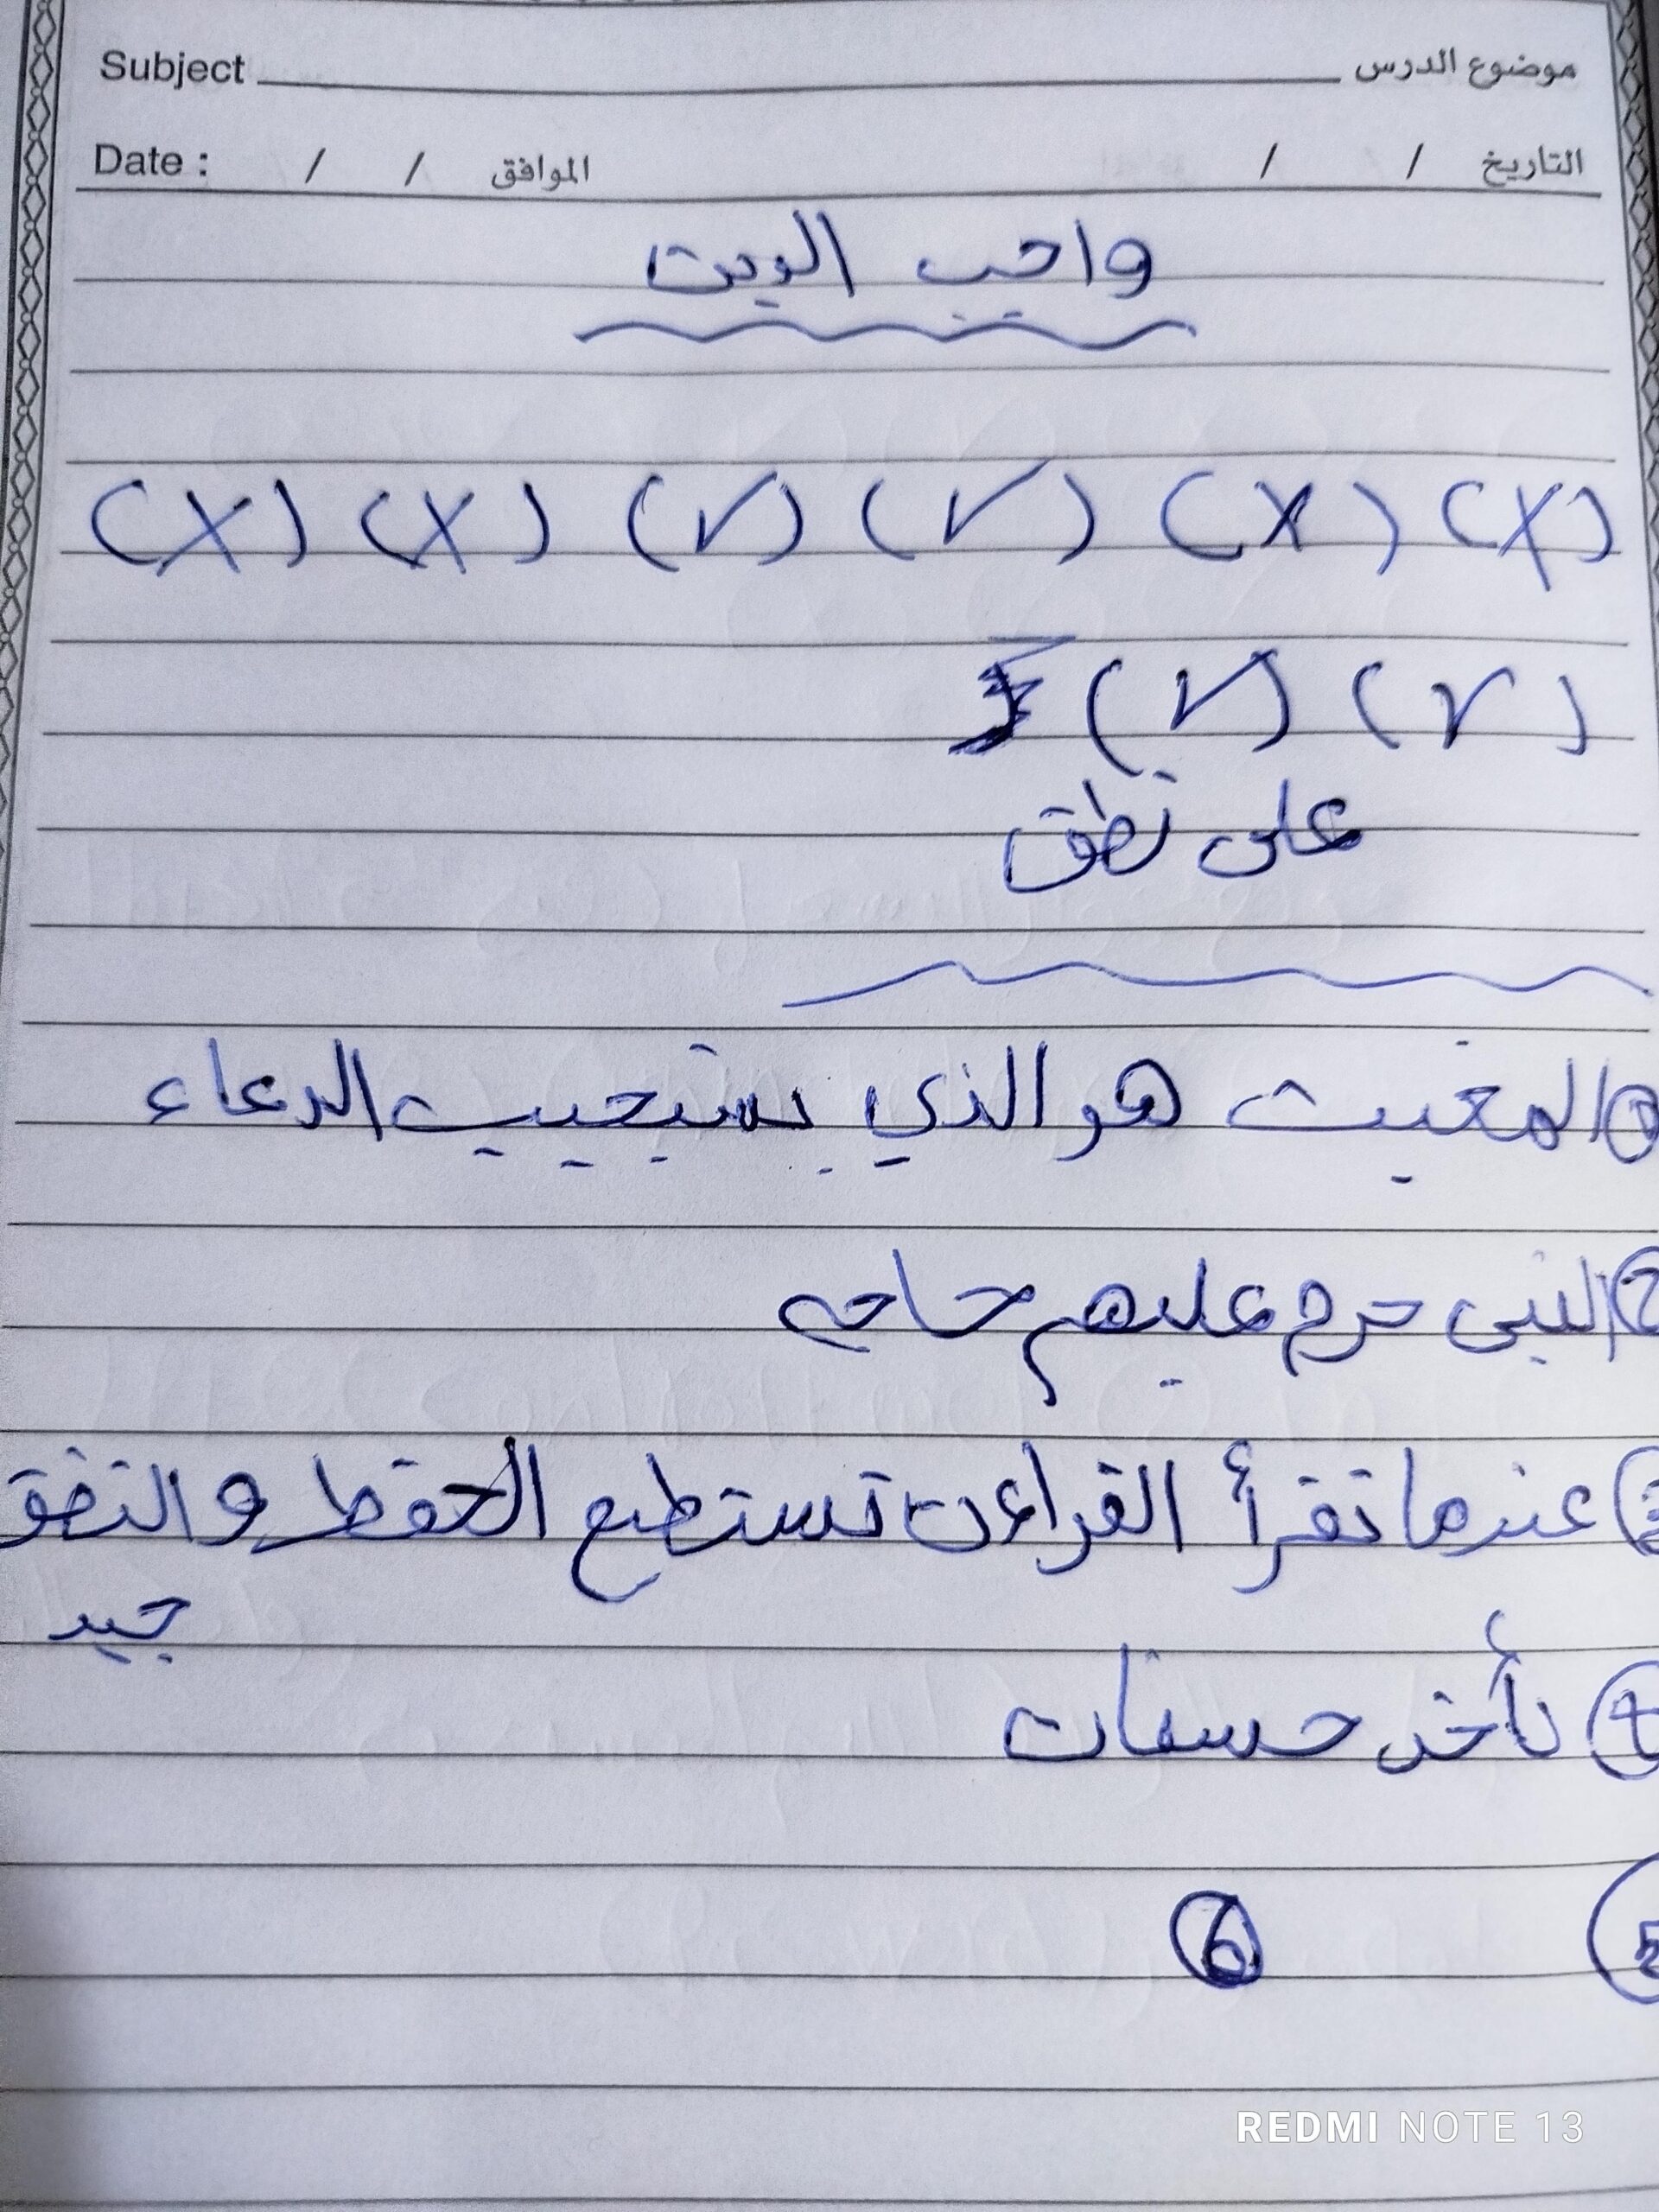 Subject موضوع الدرس
Date : / / الموافق / / التاريخ
واجب البيت
(X) (X) (√) (√) (X) (X)
(√) (√)
على نطق
① المغيث هو الذي يستجيب الدعاء
② النبى حرم عليهم حاجه
③ عندما تقرأ القراءن تستطيع الحفظ و النطق
جيد
④ تأخذ حسنات
⑤ ⑥
REDMI NOTE 13